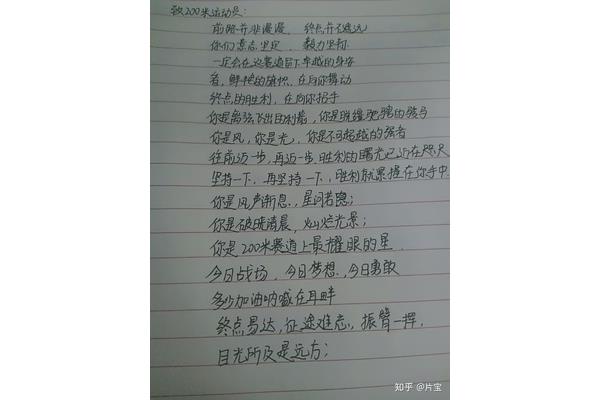 致200米运动员:
前路并非漫漫, 终点并不遥远
你们意志坚定, 毅力坚韧
一定会在这赛道留下卓越的身姿
看,鲜艳的旗帜,在向你舞动
终点的胜利,在向你招手
你是离弦飞出的利箭,你是脱缰驰骋的骏马
你是风,你是光,你是不可超越的强者
往前迈一步,再迈一步,胜利的曙光已近在咫尺
坚持一下,再坚持一下,胜利就累握在你手中
你是风声渐息,星间若隐;
你是破晓清晨,灿烂光景;
你是200米赛道上最耀眼的星
今日战场,今日梦想,今日勇敢
多少加油呐喊在耳畔
终点易达,征途难忘,振臂一挥,
目光所及是远方;
知乎 @片宝